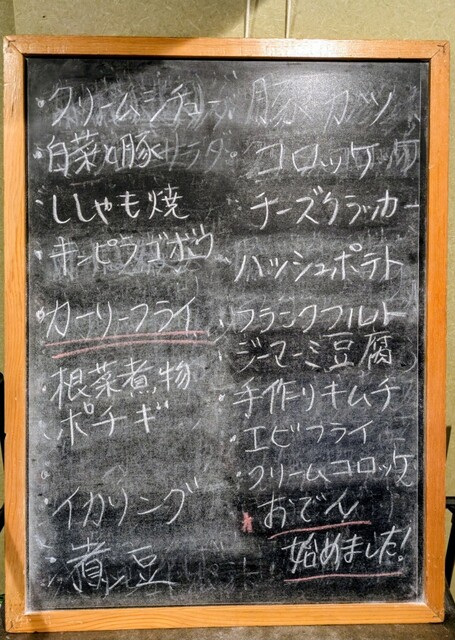 クリームシチュー
白菜と豚サラダ
ししゃも焼
キンピラゴボウ
カーリーフライ
根菜煮物
ポテギ
イカリング
煮豆
豚カツ
コロッケ
チーズクラッカー
ハッシュポテト
フランクフルト
ジーマーミ豆腐
手作りキムチ
エビフライ
クリームコロッケ
おでん
始めました!